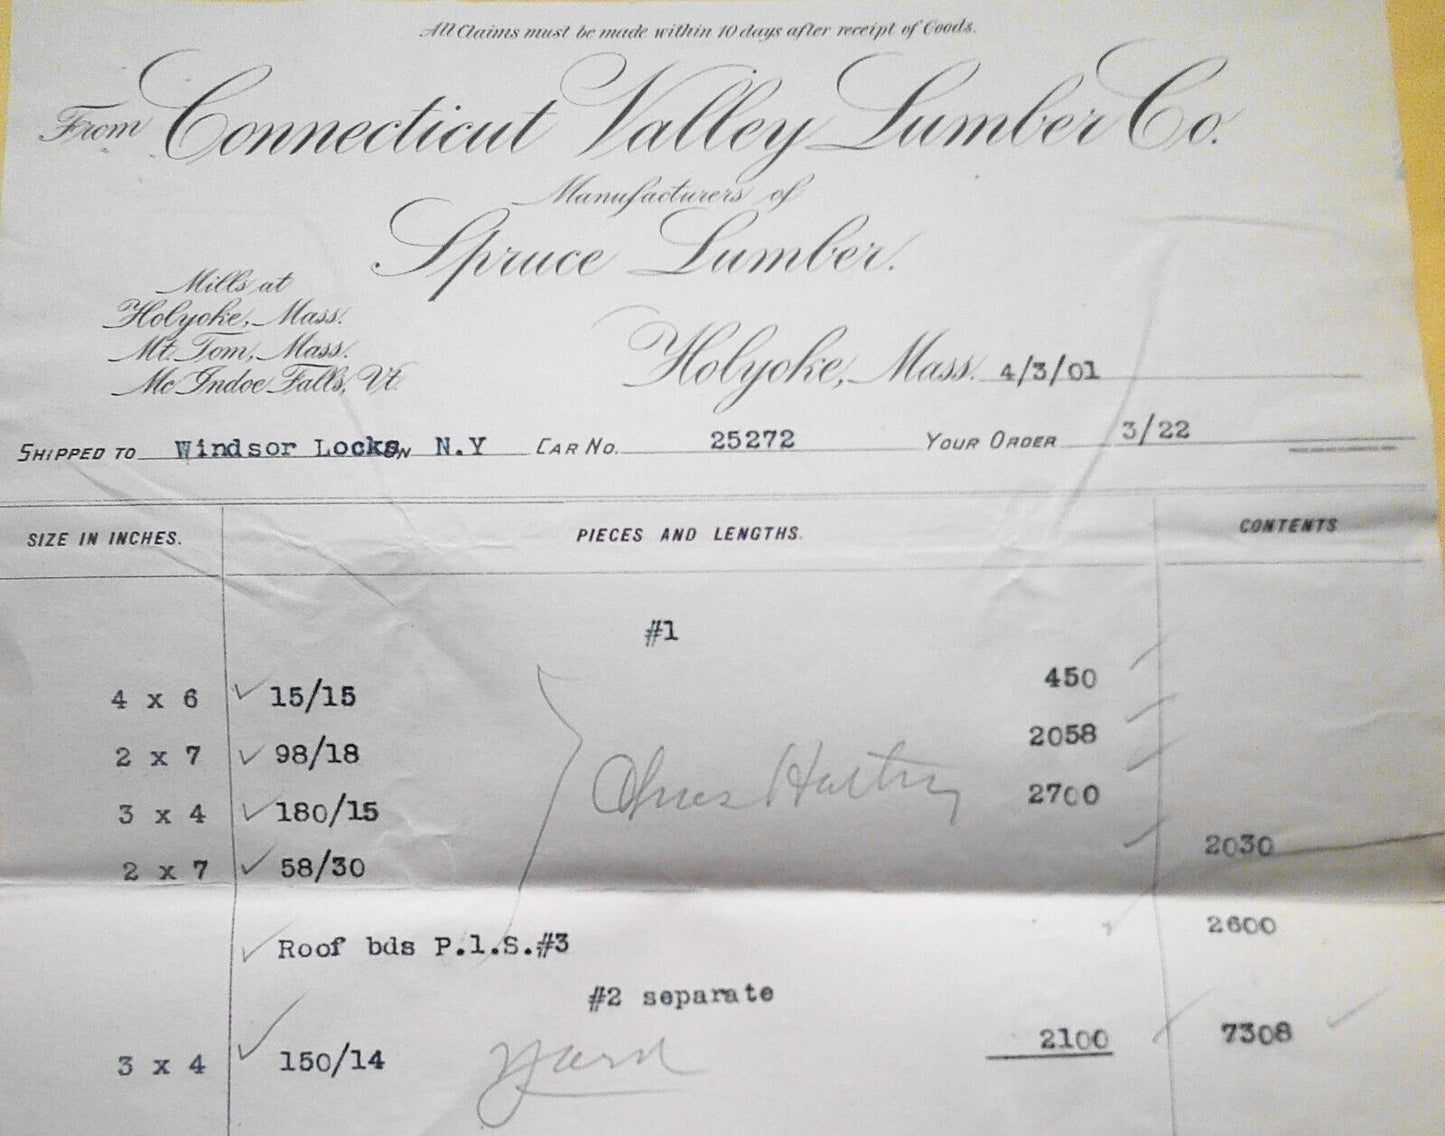 All Claims must be made within 10 days after receipt of Goods.
From Connecticut Valley Lumber Co.
Manufacturers of
Spruce Lumber.
Mills at
Holyoke, Mass.
Mt. Tom, Mass.
Mc Indoe Falls, Vt.
Holyoke, Mass. 4/3/01
SHIPPED TO Windsor Locks, N.Y CAR NO. 25272 YOUR ORDER 3/22
SIZE IN INCHES. PIECES AND LENGTHS. CONTENTS
#1
4 x 6 15/15 450
2 x 7 98/18 2058
3 x 4 180/15 2700
2 x 7 58/30 2030
Roof bds P.1.S.#3 2600
#2 separate
3 x 4 150/14 Yard 2100 7308